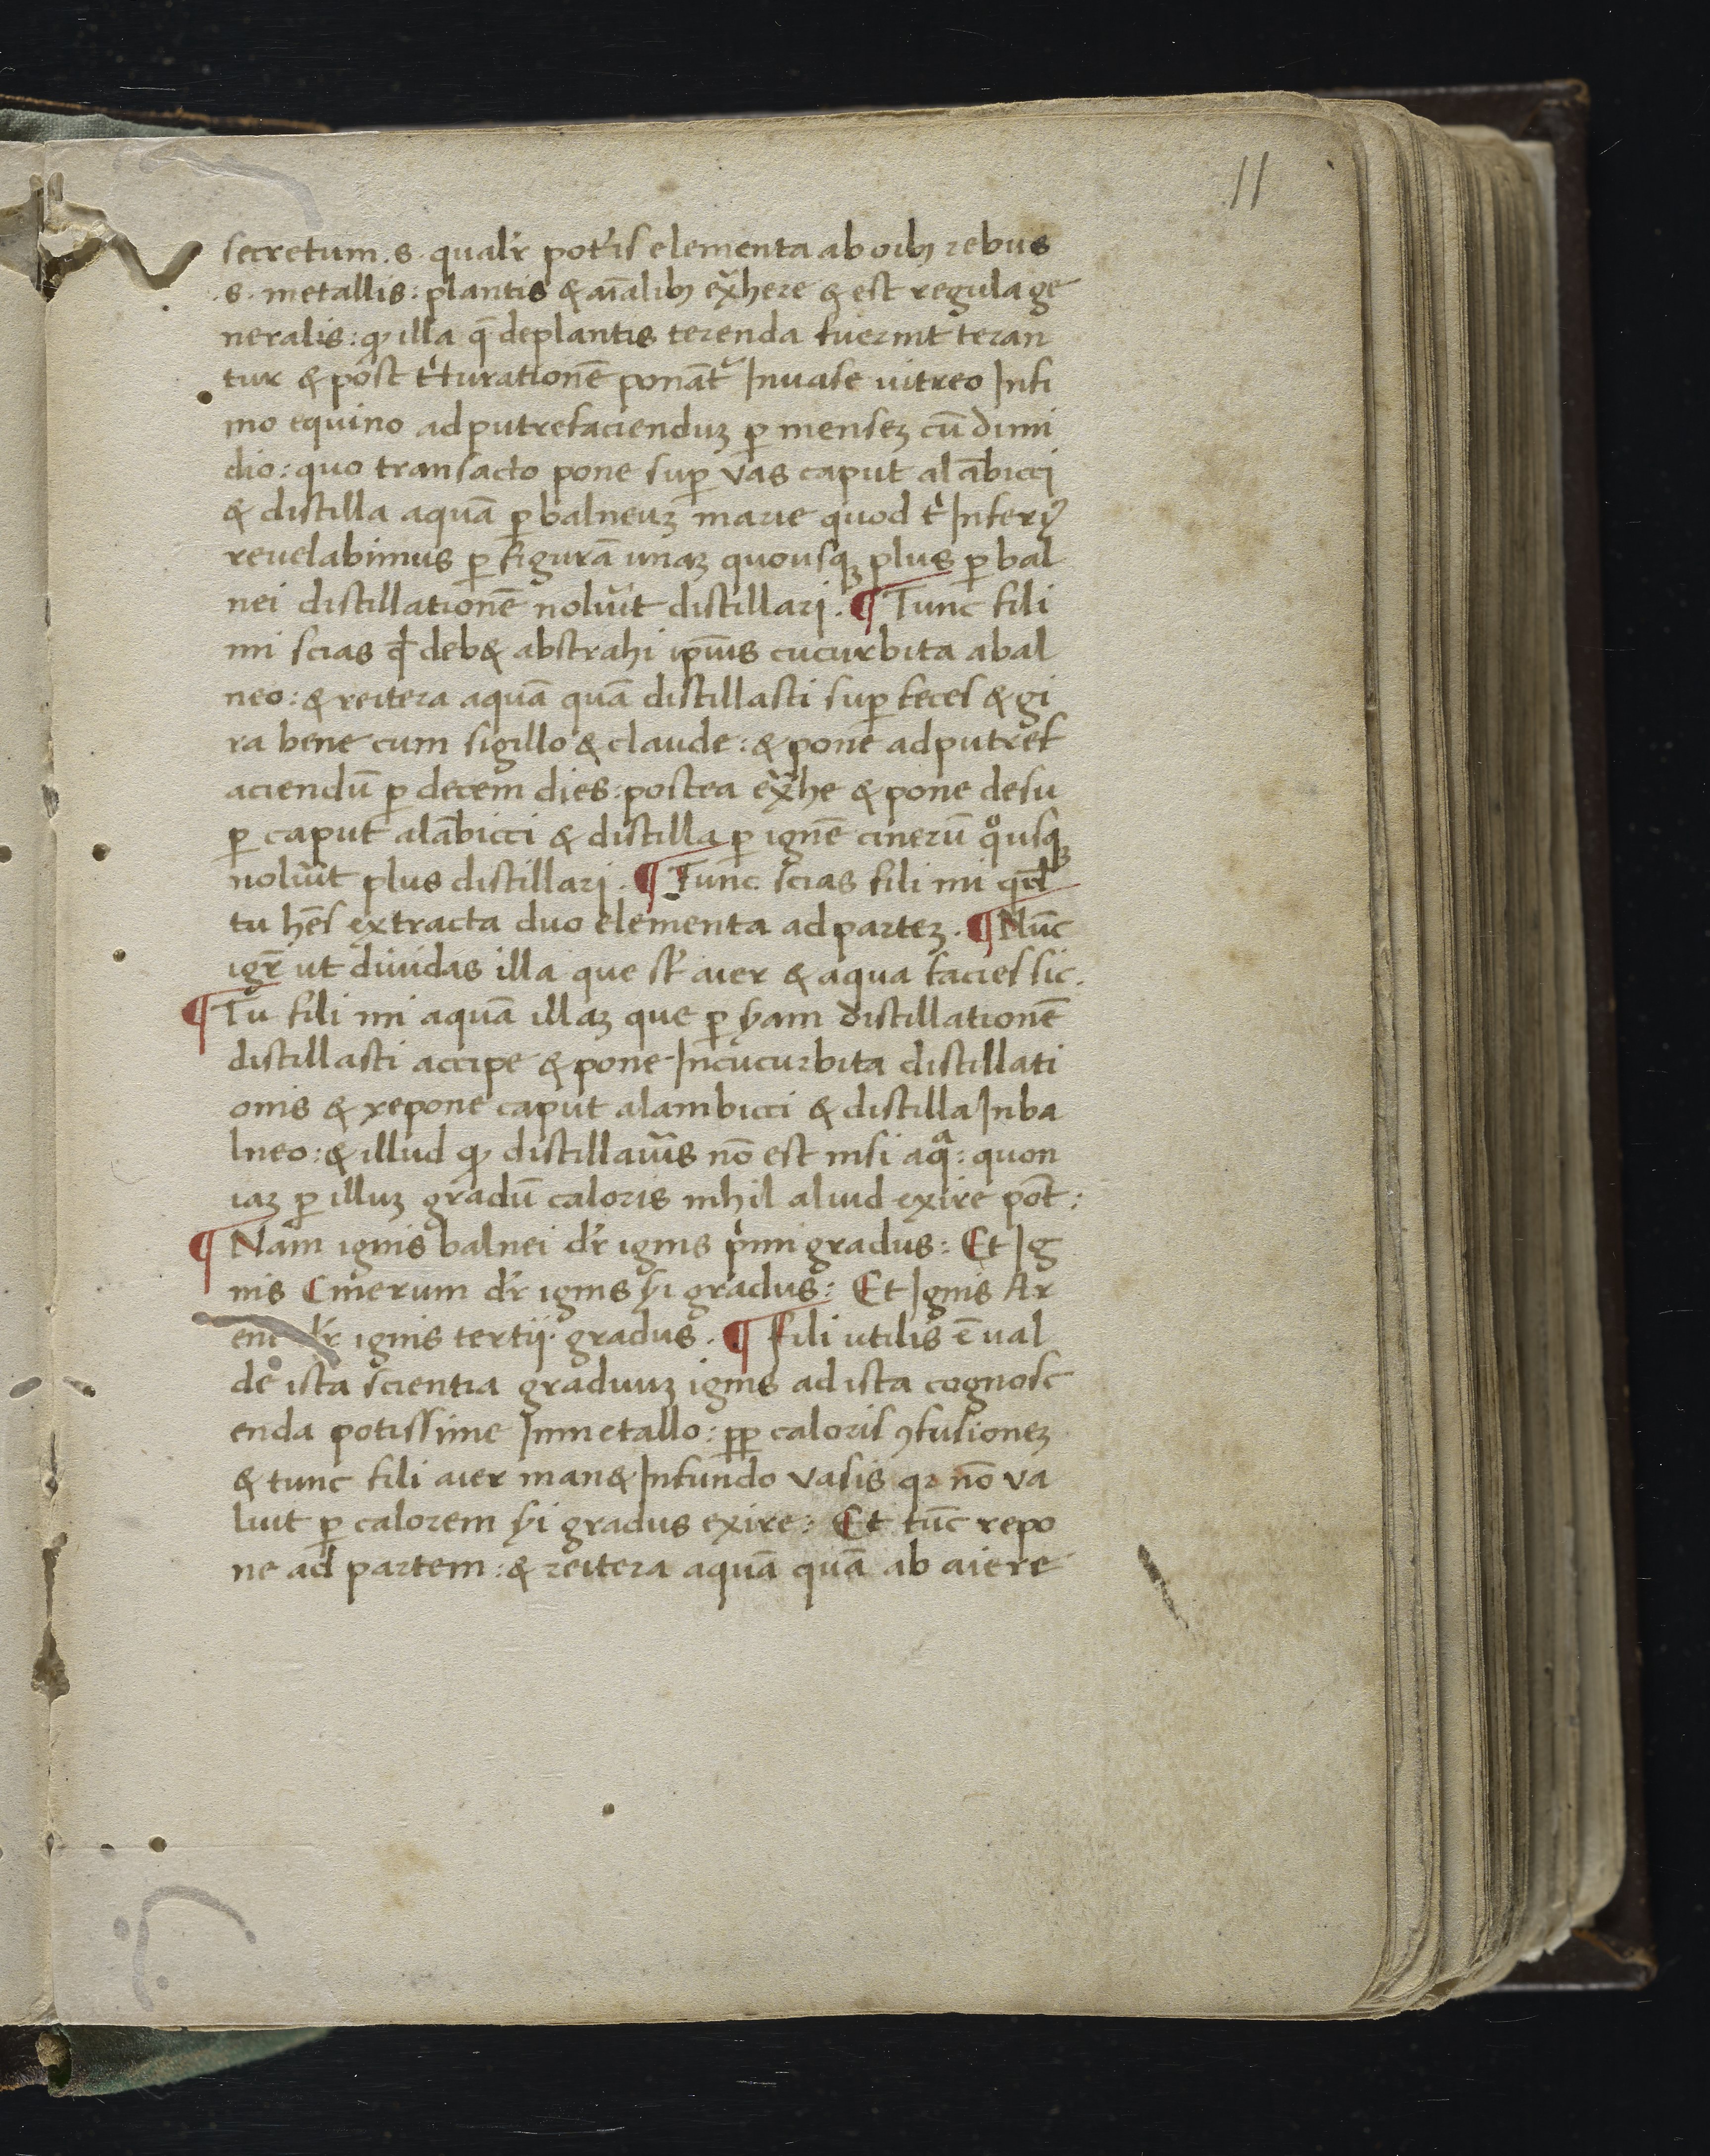 11
secretum .s. qualr̃ potis elementa ab oibꝫ rebus
.s. metallis: plantis & aĩalibꝫ ex̃here & est regula ge
neralis: ꝙ illa q̃ deplantis terenda fuerint teran
tur & post tͥturationē ponāt᷑ Inuase uitreo Infi
mo equino adputrefacienduꝫ ꝑ menseꝫ cū dimi
dio: quo transacto pone suꝑ vas caput alābicci
& distilla aquā ꝑ balneuꝫ marie quod tͥ Inferiꝰ
reuelabimus ꝑ figurā unaꝫ quousqꝫ plus ꝑ bal
nei distillationē noluĩt distillari. ¶ Tunc fili
mi scias ꝙ deb& abstrahi ipsius cucurbita abal
neo: & reitera aquā quā distillasti suꝑ feces & gi
ra bene cum sigillo & claude: & pone adputref
aciendū ꝑ decem dies: postea ex̃he & pone desu
ꝑ caput alābicci & distilla ꝑ ignē cinerū qͦusqꝫ
noluĩt plus distillari. ¶ Tunc scias fili mi qd̃
tu hēs extracta duo elementa ad parteꝫ. ¶ Nūc
igr̃ ut diuidas illa que st̃ aier & aqua facies sic.
¶ Tu fili mi aquā illaꝫ que ꝑ ẏam distillationē
distillasti accipe & pone Incucurbita distillati
onis & repone caput alambicci & distilla Inba
lneo: & illud ꝙ distillauĩs nō est nisi aqᵃ: quon
iaꝫ ꝑ illuꝫ gradū caloris nihil aliud exire pōt:
¶ Nam ignis balnei dr̃ ignis pͥmi gradus: Et Ig
nis Cinerum dr̃ ignis ẏi gradus: Et Ignis Ar
eni dr̃ ignis tertij gradus. ¶ fili utilis ē ual
de ista scientia graduuꝫ ignis ad ista cognosc
enda potissime Inmetallo: ꝑꝑ caloris ꝯfusioneꝫ
& tunc fili aier man& Infundo vasis qꝛ nō va
luit ꝑ calorem ẏi gradus exire: Et tūc repo
ne ad partem: & reitera aquā quā ab aiere